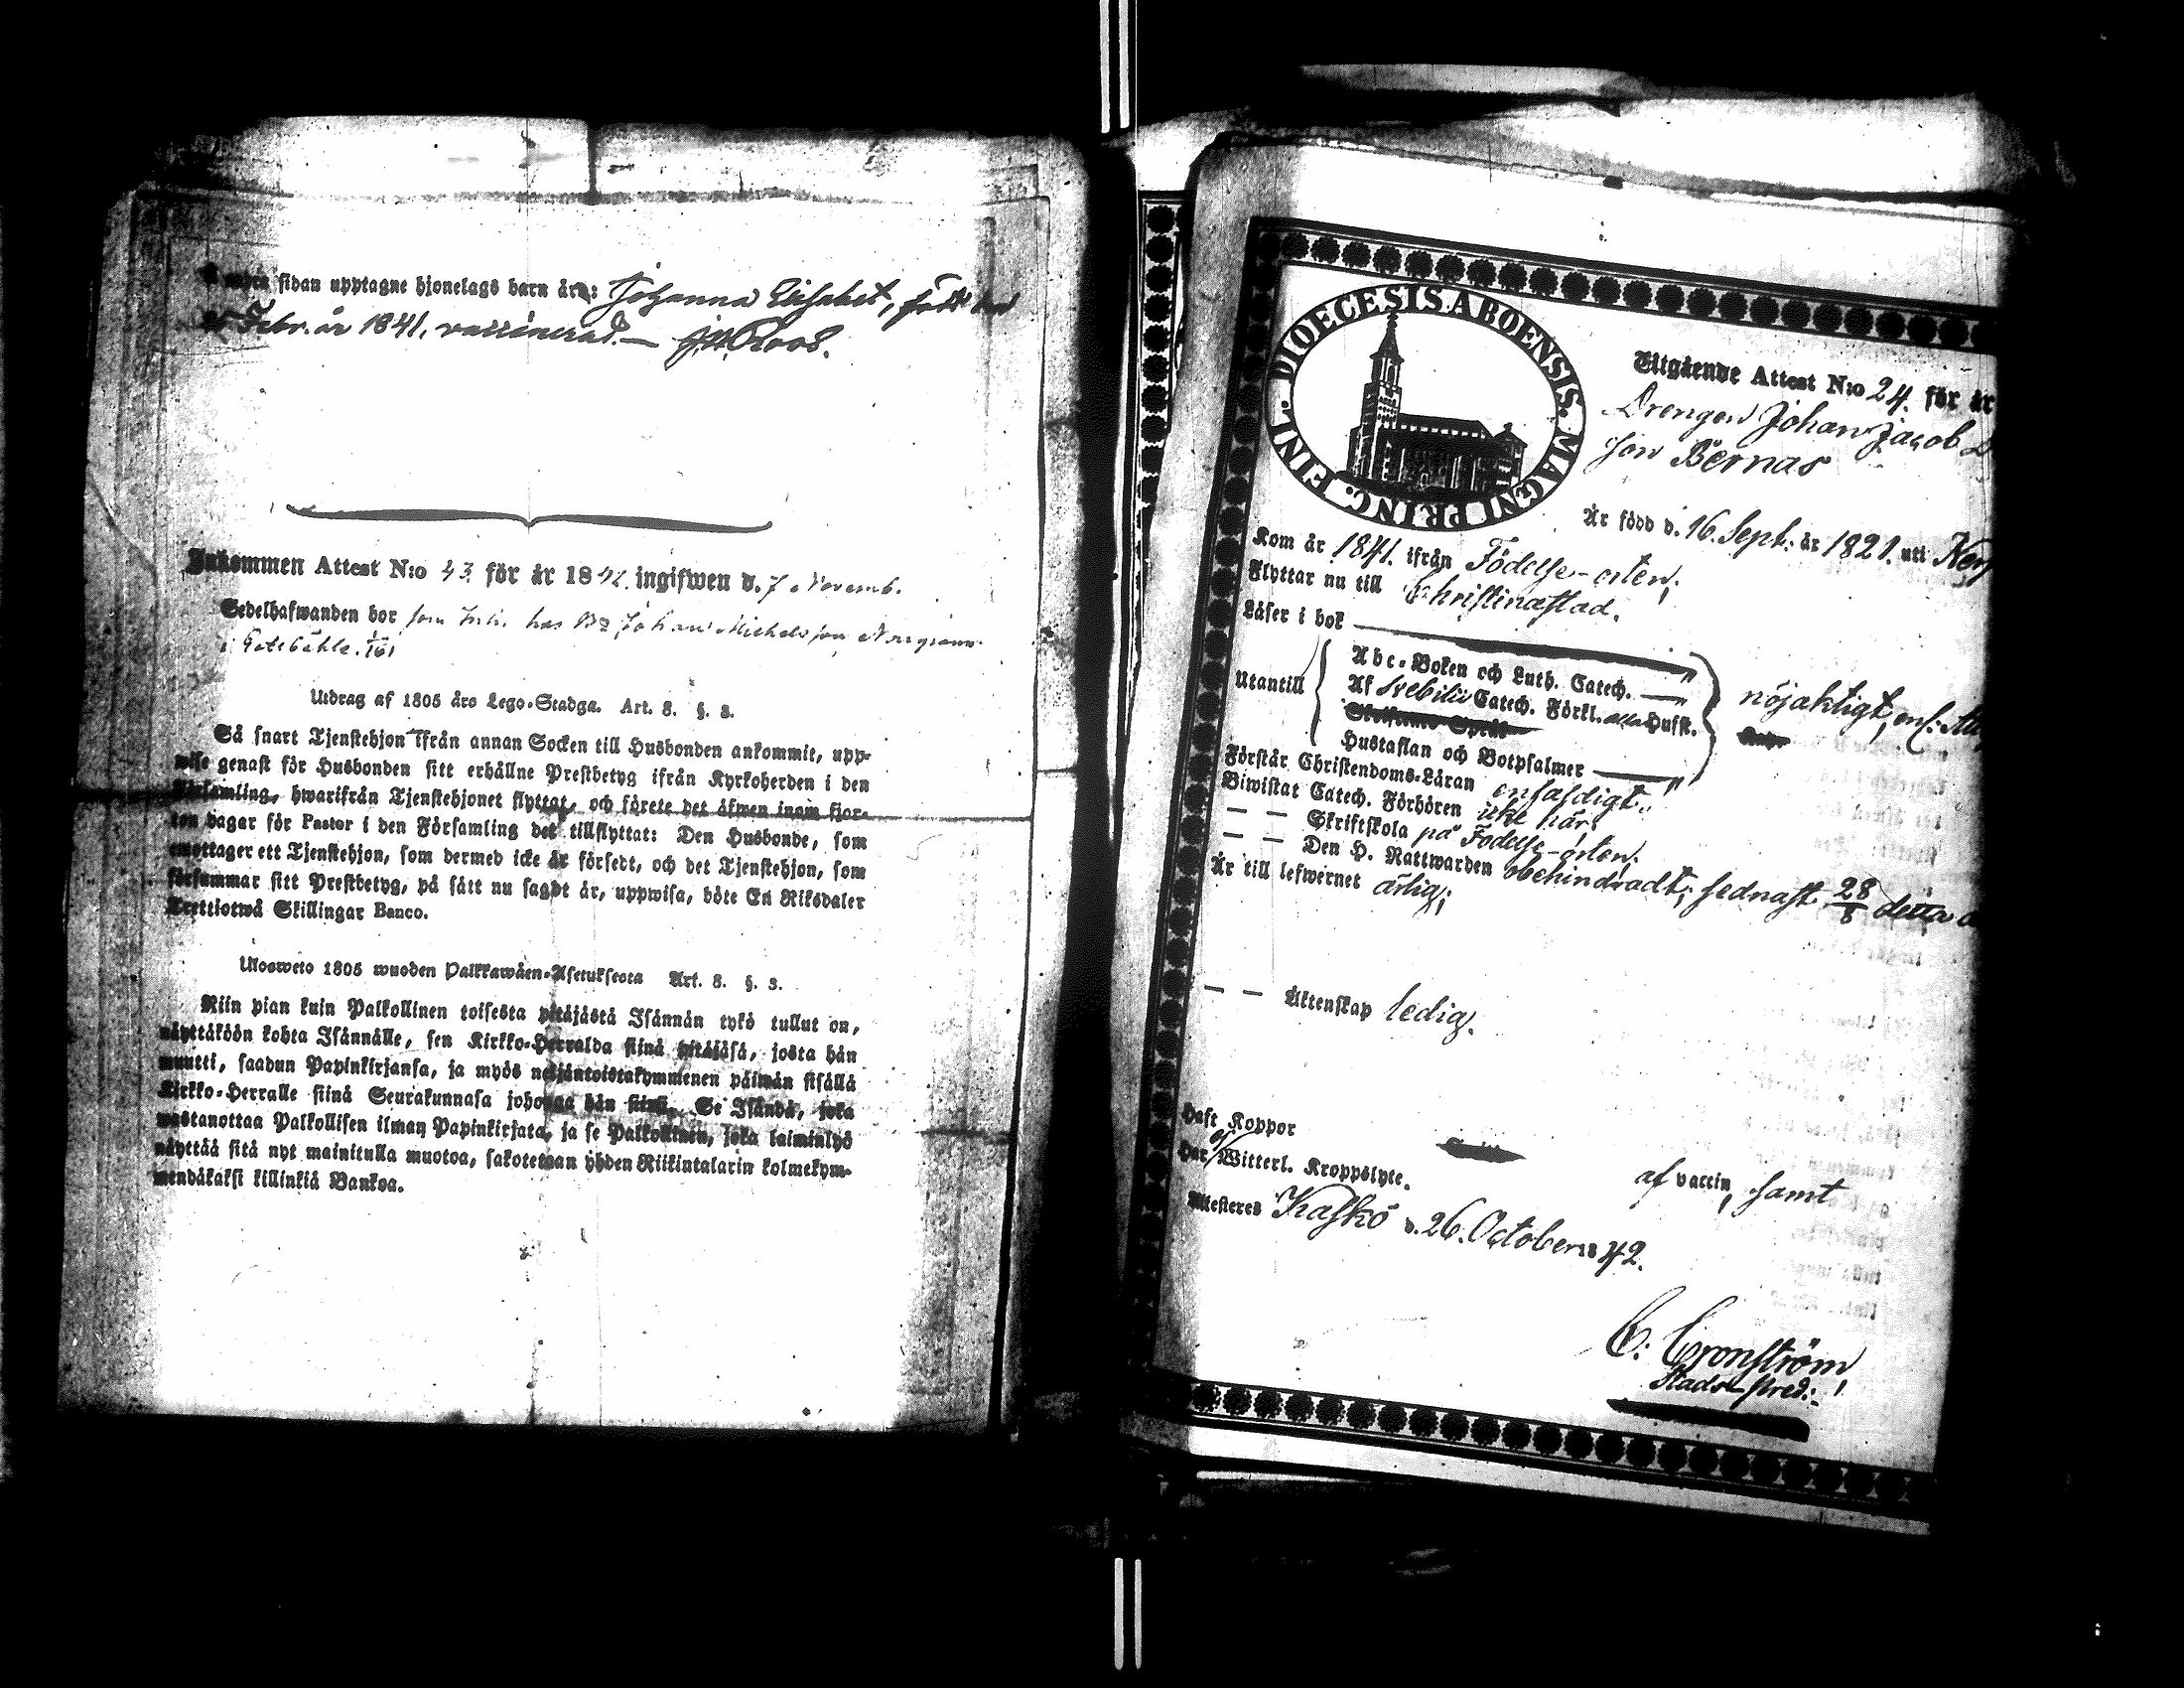 sidan upptagne hjonelags barn äro: Johanna Elisabet, född den
Febr. år 1841. vaccinerad.— J. H. Roos.
Inkommen Attest N:o 43. för år 1842. ingifwen d. 7 Novemb.
Sedelhafwanden bor som Inh. hos Johan Michelsson
i
Utdrag af 1805 års Lego-Stadga. Art. 8. §. 3.
Så snart Tjenstehjon ifrån annan Socken till Husbonden ankommit, upp-
wise genast för Husbonden sitt erhållne Prestbetyg ifrån Kyrkoherden i den
Församling, hwarifrån Tjenstehjonet flyttat, och förete det äfwen inom fjor-
ton dagar för Pastor i den Församling det tillflyttat: Den Husbonde, som
emottager ett Tjenstehjon, som dermed icke är försedt, och det Tjenstehjon, som
försummar sitt Prestbetyg, på sätt nu sagdt är, uppwisa, böte En Riksdaler
Trettiotwå Skillingar Banco.
Ulosweto 1805 wuoden Palkkawäen-Asetuksesta Art. 8. §. 3.
Niin pian kuin Palkollinen toisesta pitäjästä Isännän tykö tullut on,
näyttäköön kohta Isännälle, sen Kirkko-Herralda siinä pitäjäsä, josta hän
muutti, saadun Papinkirjansa, ja myös neljäntoistakymmenen päiwän sisällä
Kirkko-Herralle siinä Seurakunnasa johonga hän siirsi. Se Isändä, joka
wastanottaa Palkollisen ilman Papinkirjata, ja se Palkollinen, joka laiminlyö
näyttää sitä nyt mainitulla muotoa, sakotetwan yhden Riikintalarin kolmekym-
mendäkaksi killinkiä Bankoa.
DIOECESIS ABOENSIS. MAGNI PRINC. FINL.
Utgående Attest N:o 24. för år
Drengen Johan Jacob
son Bernas
Är född d. 16. Sept: år 1821. uti
Kom år 1841. ifrån Födelse-orten;
Flyttar nu till Christinæstad.
Läser i bok
Utantill
Abc-Boken och Luth. Catech.
Af Svebilii Catech. Förkl. alla Hufst.
Hustaflan och Botpsalmer
nöjaktigt, enl. Att
Förstår Christendoms-Läran enfaldigt.
Biwistat Catech. Förhören icke här;
— — Skriftskola på Födelse-orten;
— — Den H. Nattwarden obehindradt; sednast 28/8 detta
Är till lefwernet ärlig;
— — Äktenskap ledig.
Haft Koppor af vaccin, samt
Har ej Witterl. Kroppslyte.
Attesteres Kaskö d. 26. October 1842.
C: Cronström
Stads-pred: